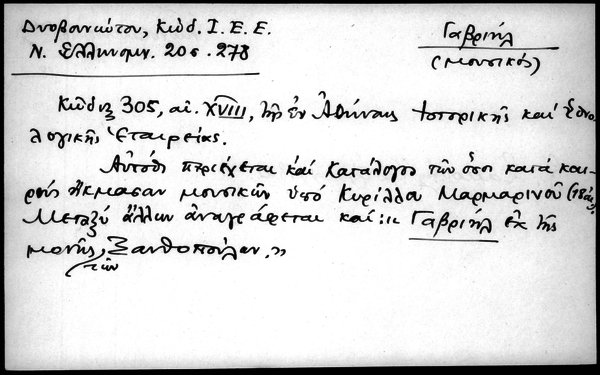 Δυοβουνιώτου, Κώδ. Ι. Ε. Ε.
Ν. Ἑλληνομν. 20ς. 278
Γαβριήλ
(μουσικός)
Κώδιξ 305, αἰ. XVIII, τῆς ἐν Ἀθήναις Ἱστορικῆς καί Ἐθνο-
λογικῆς Ἑταιρείας.
Αὐτόθι περιέχεται καί κατάλογος τῶν ὅσοι κατά και-
ρούς ἤκμασαν μουσικῶν ὑπό Κυρίλλου Μαρμαρινοῦ (18 αἰ.).
Μεταξύ ἄλλων ἀναγράφεται καί: "Γαβριήλ ἐκ τῆς
μονῆς τῶν Ξανθοπούλων."